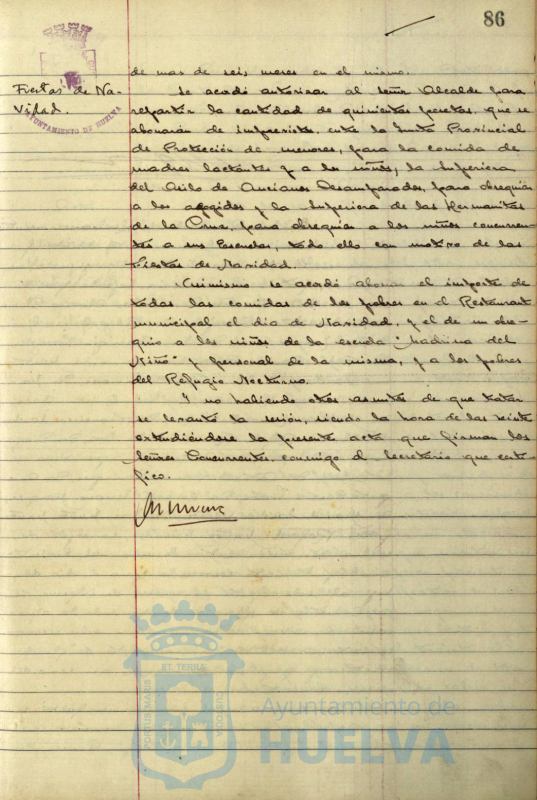 86
AYUNTAMIENTO DE HUELVA
Fiestas de Na-
vidad.
de mas de seis meses en el mismo.
Se acordó autorizar al señor Alcalde para
repartir la cantidad de quinientas pesetas, que se
abonarán de imprevistos, entre la Junta Provincial
de Protección de menores, para la comida de
madres lactantes y a los niños, la Superiora
del Asilo de Ancianos Desamparados, para obsequiar
a los acogidos y la Superiora de las Hermanitas
de la Cruz, para obsequiar a los niños concurren-
tes a sus Escuelas, todo ello con motivo de las
Fiestas de Navidad.
Asimismo se acordó abonar el importe de
todas las comidas de los pobres en el Restaurant
municipal el día de Navidad, y el de un obse-
quio a los niños de la escuela "Madrina del
Niño" y personal de la misma, y a los pobres
del Refugio Nocturno.
Y no habiendo otros asuntos de que tratar
se levantó la sesión, siendo la hora de las veinte
extendiéndose la presente acta que firman los
señores Concurrentes, conmigo el Secretario que certi-
fico.
ET TERRAE
PORTUS MARIS
CUSTODIA
Ayuntamiento de
HUELVA